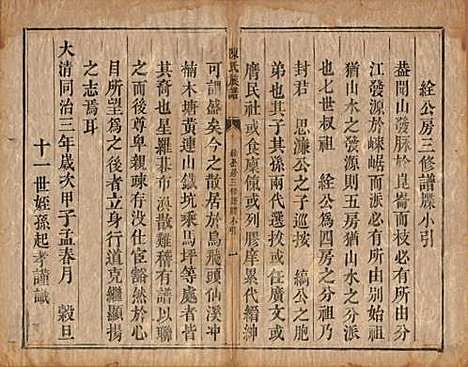 絟公房三修譜牒小引
盖聞山發脈於崑崙而枝必有所由分
江發源於崍崌而派必有所由別始祖
猶山水之發源則五房猶山水之分派
也七世叔祖　絟公為四房之分祖乃
封君　思濂公之三逕　縞公之胞
弟也其孫兩代選抜或任廣文或
膺民社或食廪餼或列膠庠累代縉紳
可謂盛矣今之散居於鳥飛頭仙溪冲
楠木塘黄連山鐵坑乗馬坪等處者皆
其裔也星羅碁布渙散難稽有譜以聯
之而後尊卑親疎有次仕宦谿然於心
目所望為之後者立身行道克繼顯揚
之志焉耳
大清同治三年歲次甲子孟春月　穀旦
十一世姪孫起孝謹識
陳氏族譜
絟公房三修譜牒小引
一